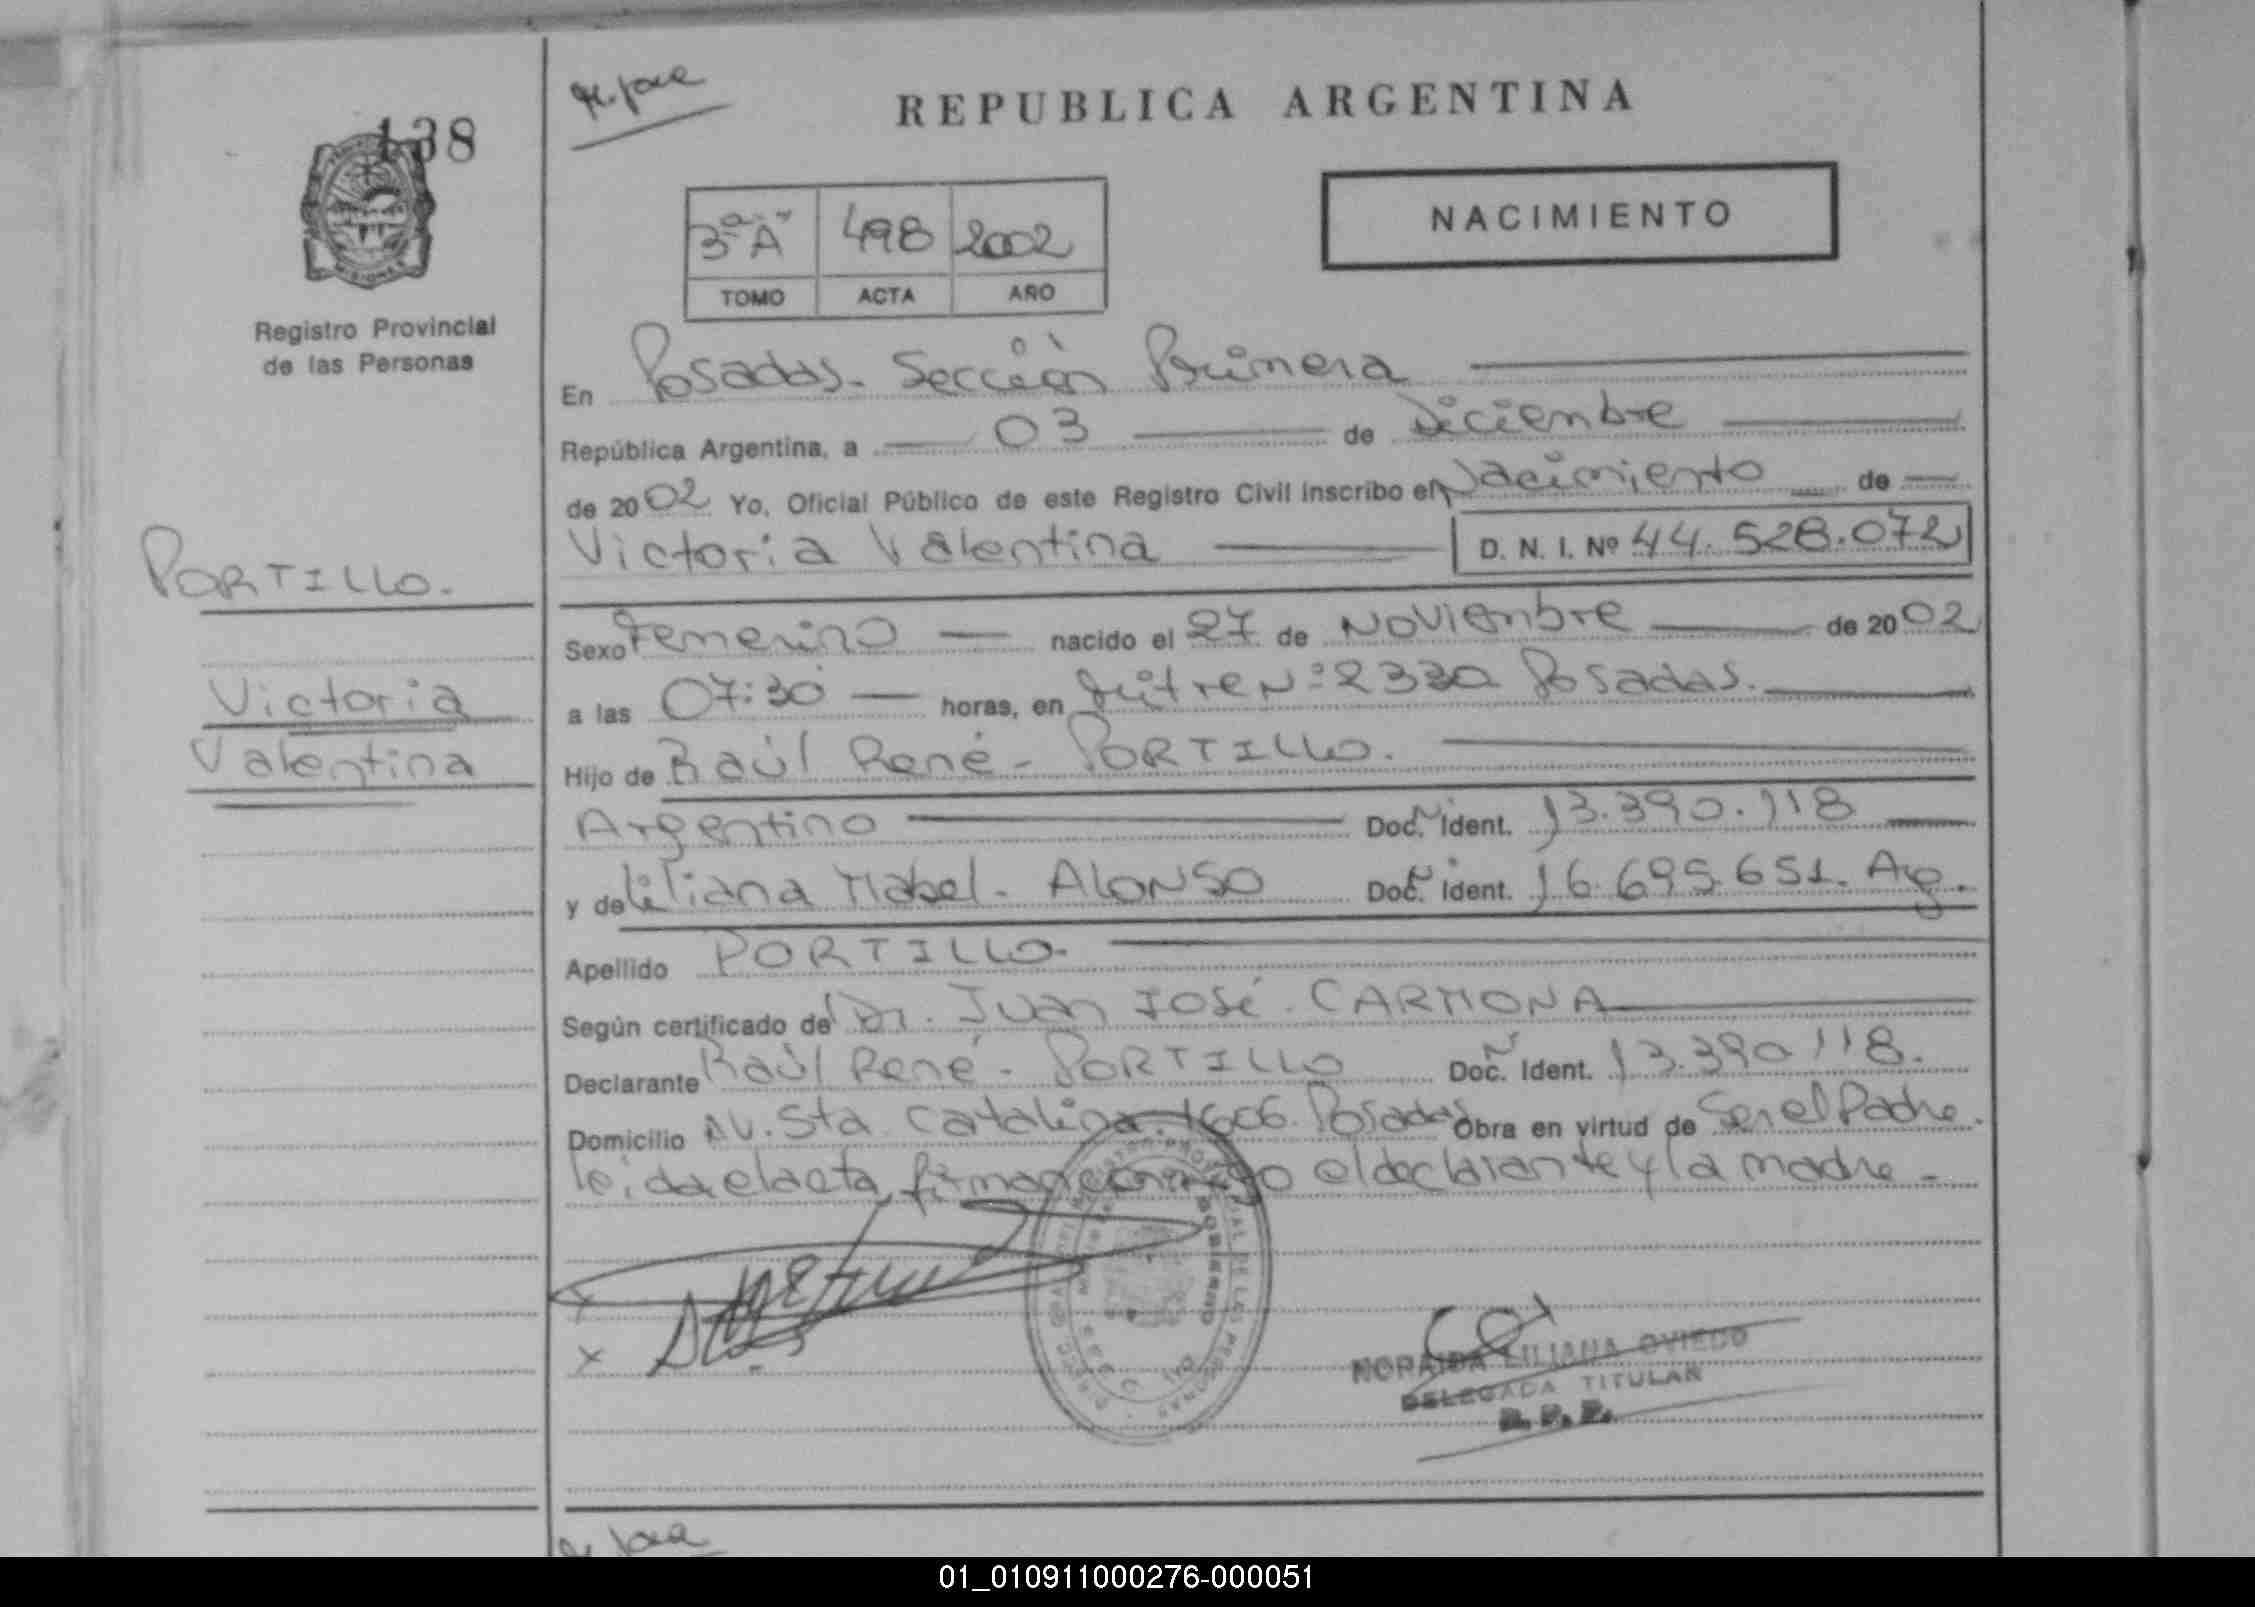 138
REPUBLICA ARGENTINA
NACIMIENTO
3ª "A" 498 2002
TOMO ACTA AÑO
Registro Provincial
de las Personas
En Posadas. Sección Primera
República Argentina, a 03 de Diciembre
de 2002 Yo, Oficial Público de este Registro Civil inscribo el Nacimiento de
Victoria Valentina D. N. I. Nº 44.528.072
PORTILLO.
Victoria
Valentina
Sexo Femenino nacido el 27 de Noviembre de 2002
a las 07:30 horas, en Mitre Nº 2330 Posadas.
Hijo de Raúl René - PORTILLO.
Argentino Doc. Ident. 13.390.118
y de Liliana Mabel - ALONSO Doc. Ident. 16.695.651. Arg.
Apellido PORTILLO.
Según certificado de Dr. Juan José - CARMONA
Declarante Raúl René - PORTILLO Doc. Ident. 13.390.118.
Domicilio Av. Sta. Catalina 1606. Posadas Obra en virtud de Ser el Padre.
leida el acta, firman conmigo el declarante y la madre -
LILIANA OVIEDO
DELEGADA TITULAR
R. P. P.
01_010911000276-000051